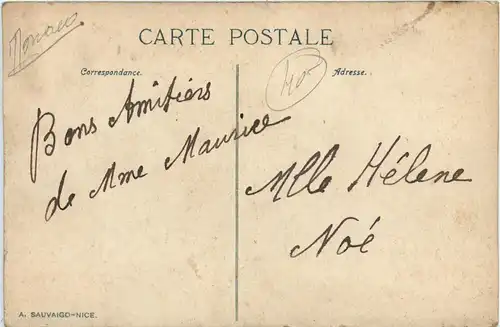 Monaco
CARTE POSTALE
Correspondance.
Adresse.
40-
Bons Amitiers
de Mme Maurice
Mlle Hélene
Noé
A. SAUVAIGO-NICE.